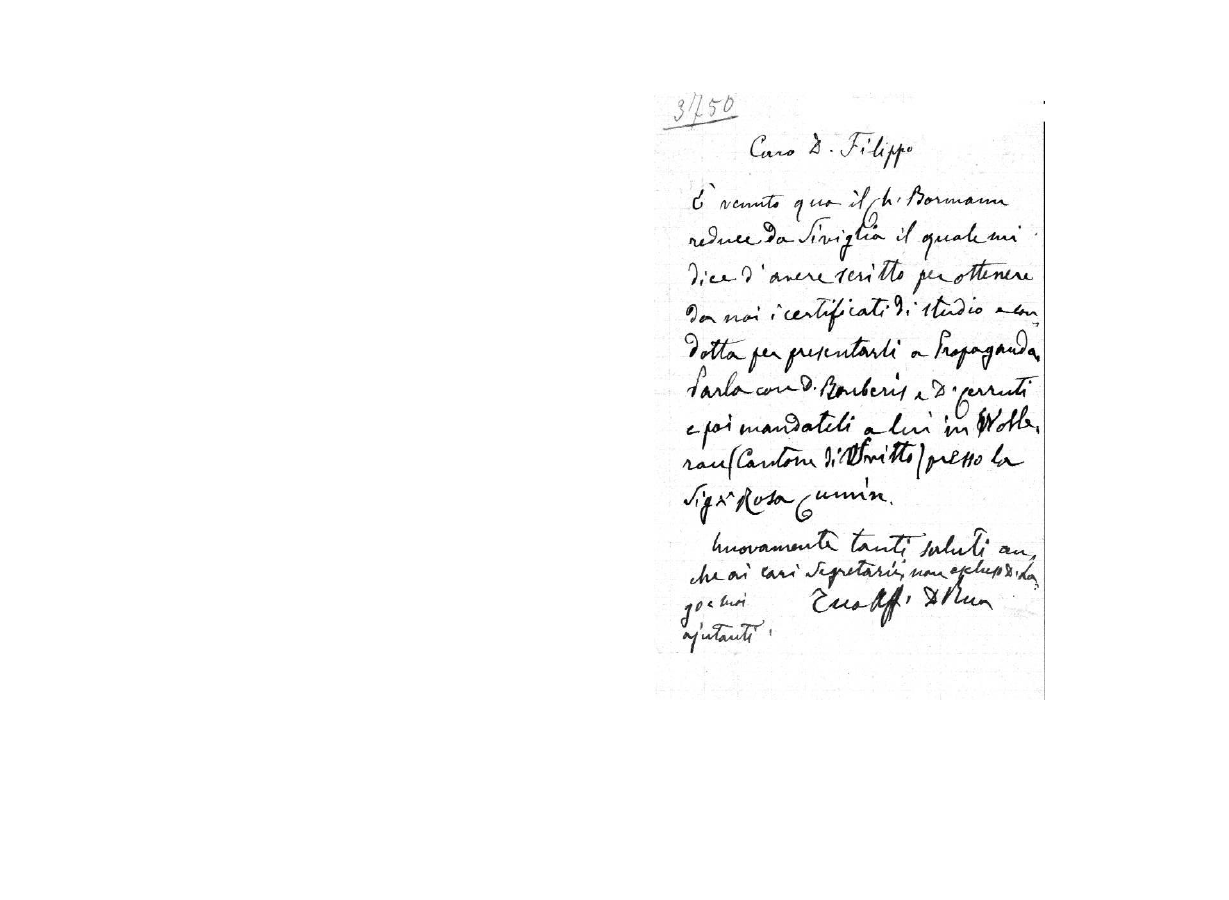 3750
Caro D. Filippo
È venuto qua il ch. Bormann
reduce da Siviglia il quale mi
dice d'avere scritto per ottenere
da noi i certificati di studio e con-
dotta per presentarli a Propaganda.
Parla con D. Barberis e D. Cerruti
e poi mandateli a lui in Wolle-
rau (Cantone di Svitto) presso la
Sig.ª Rosa
Nuovamente tanti saluti an-
che ai cari Segretarii, non escluso D. La-
go e suoi
ajutanti.
Tuo aff. D Rua